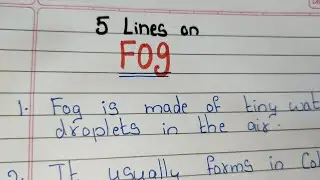 5 Lines on
Fog
1. Fog is made of tiny
droplets in the air.
2. It usually forms in